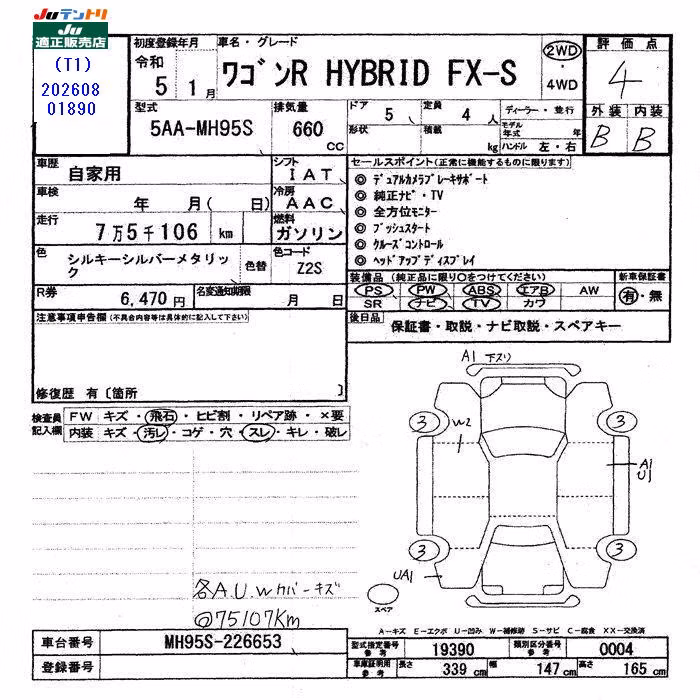 JUテントリ
JU
適正販売店
(T1)
202608
01890
初度登録年月
令和
5 1月
車名・グレード
ワゴンR HYBRID FX-S
2WD
・
4WD
評価点
4
外装 内装
B B
型式
5AA-MH95S
排気量
660
cc
ドア 5
定員 4 人
形状
積載 kg
ディーラー・並行
モデル年式 年
ハンドル 左・右
車歴 自家用
シフト IAT
車検 年 月( 日)
冷房 AAC
走行 7万5千106 km
燃料 ガソリン
色 シルキーシルバーメタリック
色替
色コード Z2S
R券 6,470 円
名変通知期限 月 日
セールスポイント(正常に機能するものに限ります)
◎ デュアルカメラブレーキサポート
◎ 純正ナビ・TV
◎ 全方位モニター
◎ プッシュスタート
◎ クルーズコントロール
◎ ヘッドアップディスプレイ
装備品 (純正品に限り○をつけてください)
PS PW ABS エアB AW
SR ナビ TV カワ
新車保証書
有・無
後日品
保証書・取説・ナビ取説・スペアキー
注意事項申告欄(不具合内容等は具体的に記入して下さい)
修復歴 有〔箇所 〕
検査員記入欄
FW キズ・飛石・ヒビ割・リペア跡・×要
内装 キズ・汚レ・コゲ・穴・スレ・キレ・破レ
A1 下スリ
3 3
W2
A1
U1
3 3
UA1
スペア
各A.U.W カバーキズ
@75107Km
A-キズ E-エクボ U-凹み W-補修跡 S-サビ C-腐食 XX-交換済
車台番号 MH95S-226653
登録番号
型式指定番号
参考
19390
類別区分番号
参考
0004
車庫証明用
参考
長さ 339 cm
幅 147 cm
高さ 165 cm